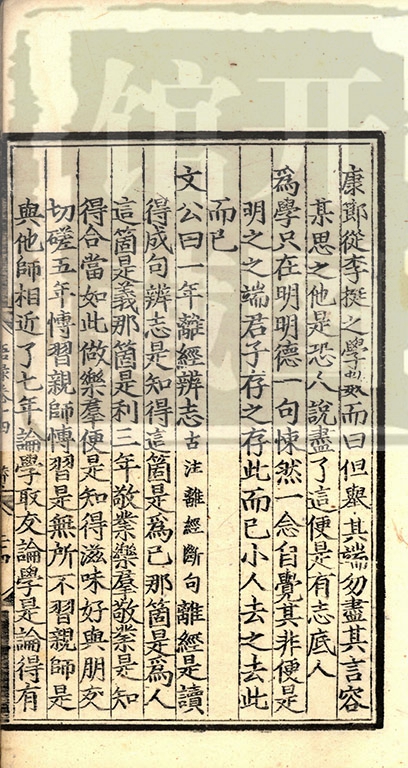 康節從李挺之學數而曰但舉其端勿盡其言容
某思之他是恐人說盡了這便是有志底人
為學只在明明德一句悚然一念自覺其非便是
明之之端君子存之存此而已小人去之去此
而已
文公曰一年離經辨志古注離經斷句離經是讀
得成句辨志是知得這箇是為己那箇是為人
這箇是義那箇是利三年敬業樂羣敬業是知
得合當如此做樂羣便是知得滋味好與朋友
切磋五年博習親師博習是無所不習親師是
與他師相近了七年論學取友論學是論得有